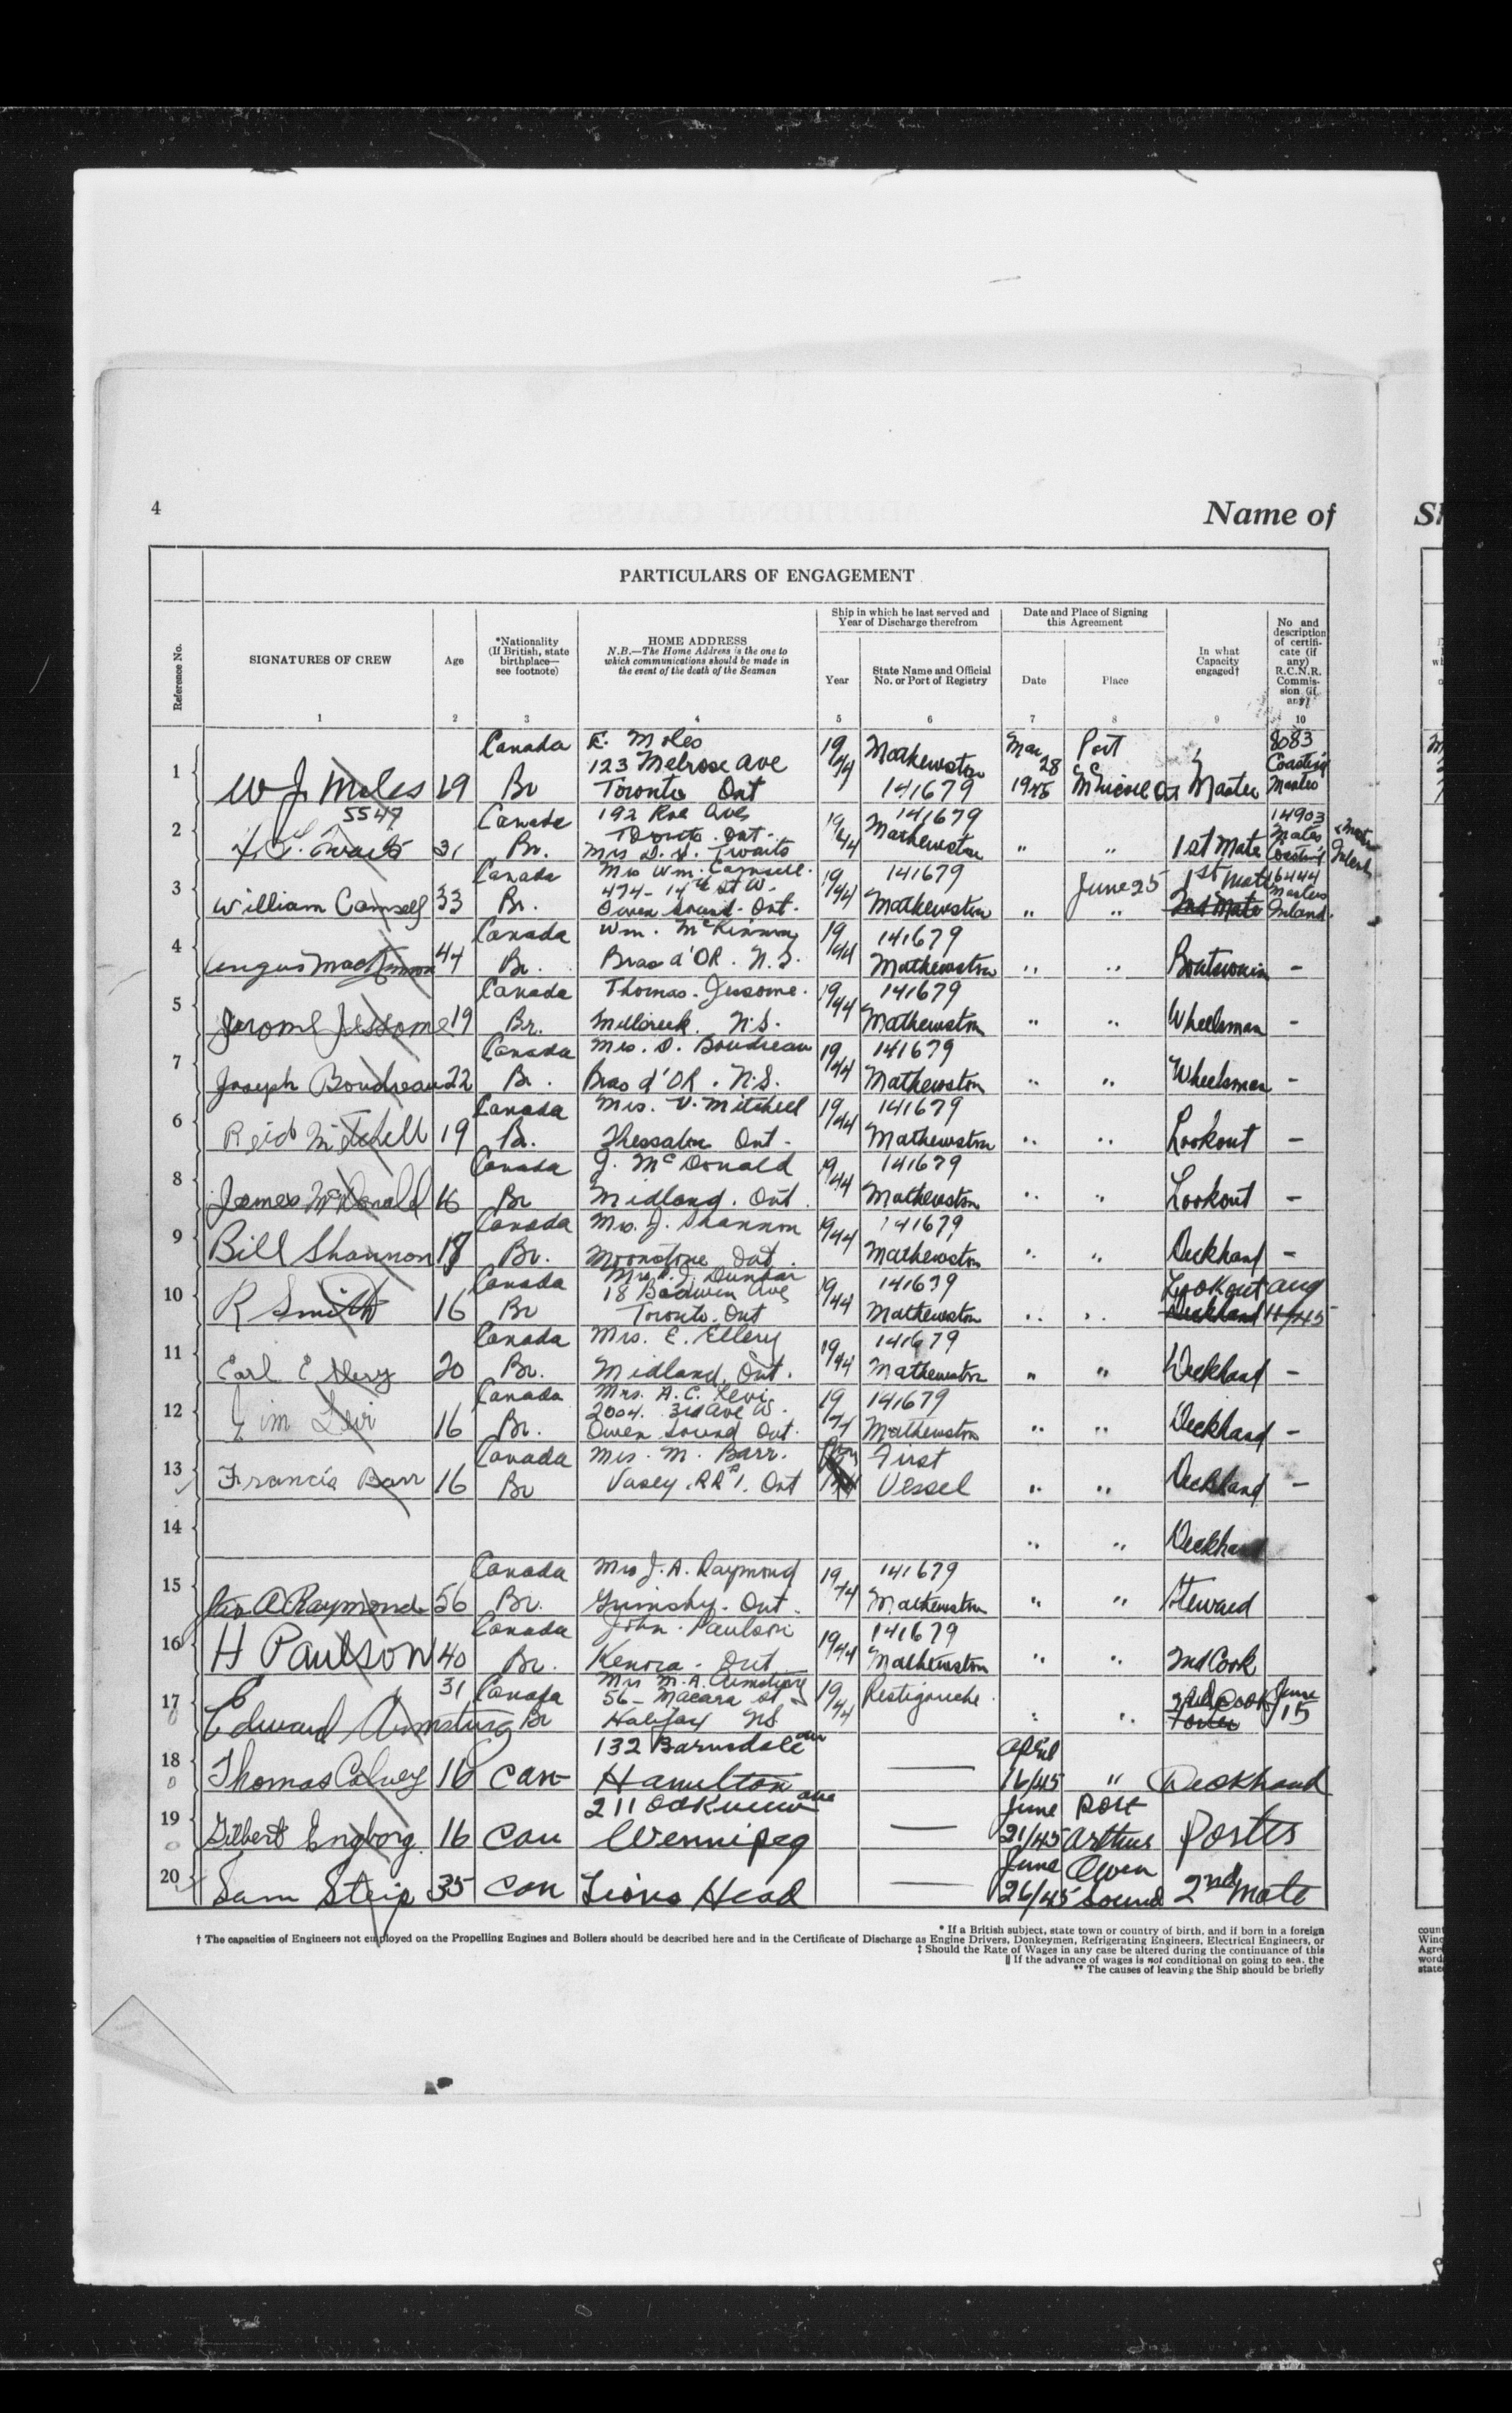 4
Name of
PARTICULARS OF ENGAGEMENT
Reference No.
SIGNATURES OF CREW
1
Age
2
*Nationality
(If British, state
birthplace—
see footnote)
3
HOME ADDRESS
N.B.—The Home Address is the one to
which communications should be made in
the event of the death of the Seaman
4
Ship in which he last served and
Year of Discharge therefrom
Year
5
State Name and Official
No. or Port of Registry
6
Date and Place of Signing
this Agreement
Date
7
Place
8
In what
Capacity
engaged†
9
No and
description
of certifi-
cate (if
any)
R.C.N.R.
Commis-
sion (if
any)
10
1 W J Moles 29 Canada Br E. Moles 123 Melrose Ave Toronto Ont 19/44 Mathewston 141679 Mar 28 1945 Port McNicoll Master 8083 Coasting Master
2 5547 31 Canada Br. 192 Rae Ave Toronto. Ont. Mrs D. H. Twaits 19/44 141679 Mathewston " " 1st Mate 14903 Mates Coasting Inland
3 William Camsell 33 Canada Br. Mrs Wm. Camsell. 474 - 14th St W. Owen Sound. Ont. 19/44 141679 Mathewston " June 25 " 1st Mate 2nd Mate 16444 Masters Inland.
4 Angus MacKinnon 44 Canada Br. Wm. McKinnon Bras d'OR. N.S. 19/44 141679 Mathewston " " Boatswain –
5 Jerome Jessome 19 Canada Br. Thomas. Jessome. Millcreek. N.S. 19/44 141679 Mathewston " " Wheelsman –
7 Joseph Boudreau 22 Canada Br. Mrs. D. Boudreau Bras d'OR. N.S. 19/44 141679 Mathewston " " Wheelsman –
6 Reid Mitchell 19 Canada Br. Mrs. V. Mitchell Thessalon Ont. 19/44 141679 Mathewston " " Lookout –
8 James McDonald 16 Canada Br J. McDonald Midland. Ont. 19/44 141679 Mathewston " " Lookout –
9 Bill Shannon 18 Canada Br. Mrs. J. Shannon Moonstone Ont. 19/44 141679 Mathewston " " Deckhand –
10 R Smith 16 Canada Br Mrs. J. Dunbar 18 Baldwin Ave Toronto. Ont 19/44 141639 Mathewston " " Lookout Aug Deckhand 11/45
11 Earl Ellery 20 Canada Br. Mrs. E. Ellery Midland. Ont. 19/44 141679 Mathewston " " Deckhand –
12 Jim Levi 16 Canada Br. Mrs. A. C. Levi 2004. 3rd Ave W. Owen Sound Ont. 19/44 141679 Mathewston " " Deckhand –
13 Francis Barr 16 Canada Br Mrs. M. Barr. Vasey. RR#1. Ont First Vessel " " Deckhand –
14 " " Deckhand
15 Jas A Raymond 56 Canada Br. Mrs J. A. Raymond Grimsby. Ont. 19/44 141679 Mathewston " " Steward
16 H Paulson 40 Canada Br. John. Paulson Kenora. Ont 19/44 141679 Mathewston " " 2nd Cook
17 Edward Armstrong 31 Canada Br Mrs M. A. Armstrong 56 - Macara St. Halifax NS 19/44 Restigouche. " " 2nd Cook Porter June 15
18 Thomas Calvey 16 Can 132 Barnsdale Ave Hamilton — April 16/45 " Deckhand
19 Gilbert Engborg 16 Can 211 Oakview Ave Winnipeg — June 21/45 Port Arthur Porter
20 Sam Strip 35 Can Lions Head — June 26/45 Owen Sound 2nd Mate
* If a British subject, state town or country of birth, and if born in a foreign
† The capacities of Engineers not employed on the Propelling Engines and Boilers should be described here and in the Certificate of Discharge as Engine Drivers, Donkeymen, Refrigerating Engineers, Electrical Engineers, or
‡ Should the Rate of Wages in any case be altered during the continuance of this
|| If the advance of wages is not conditional on going to sea, the
** The causes of leaving the Ship should be briefly